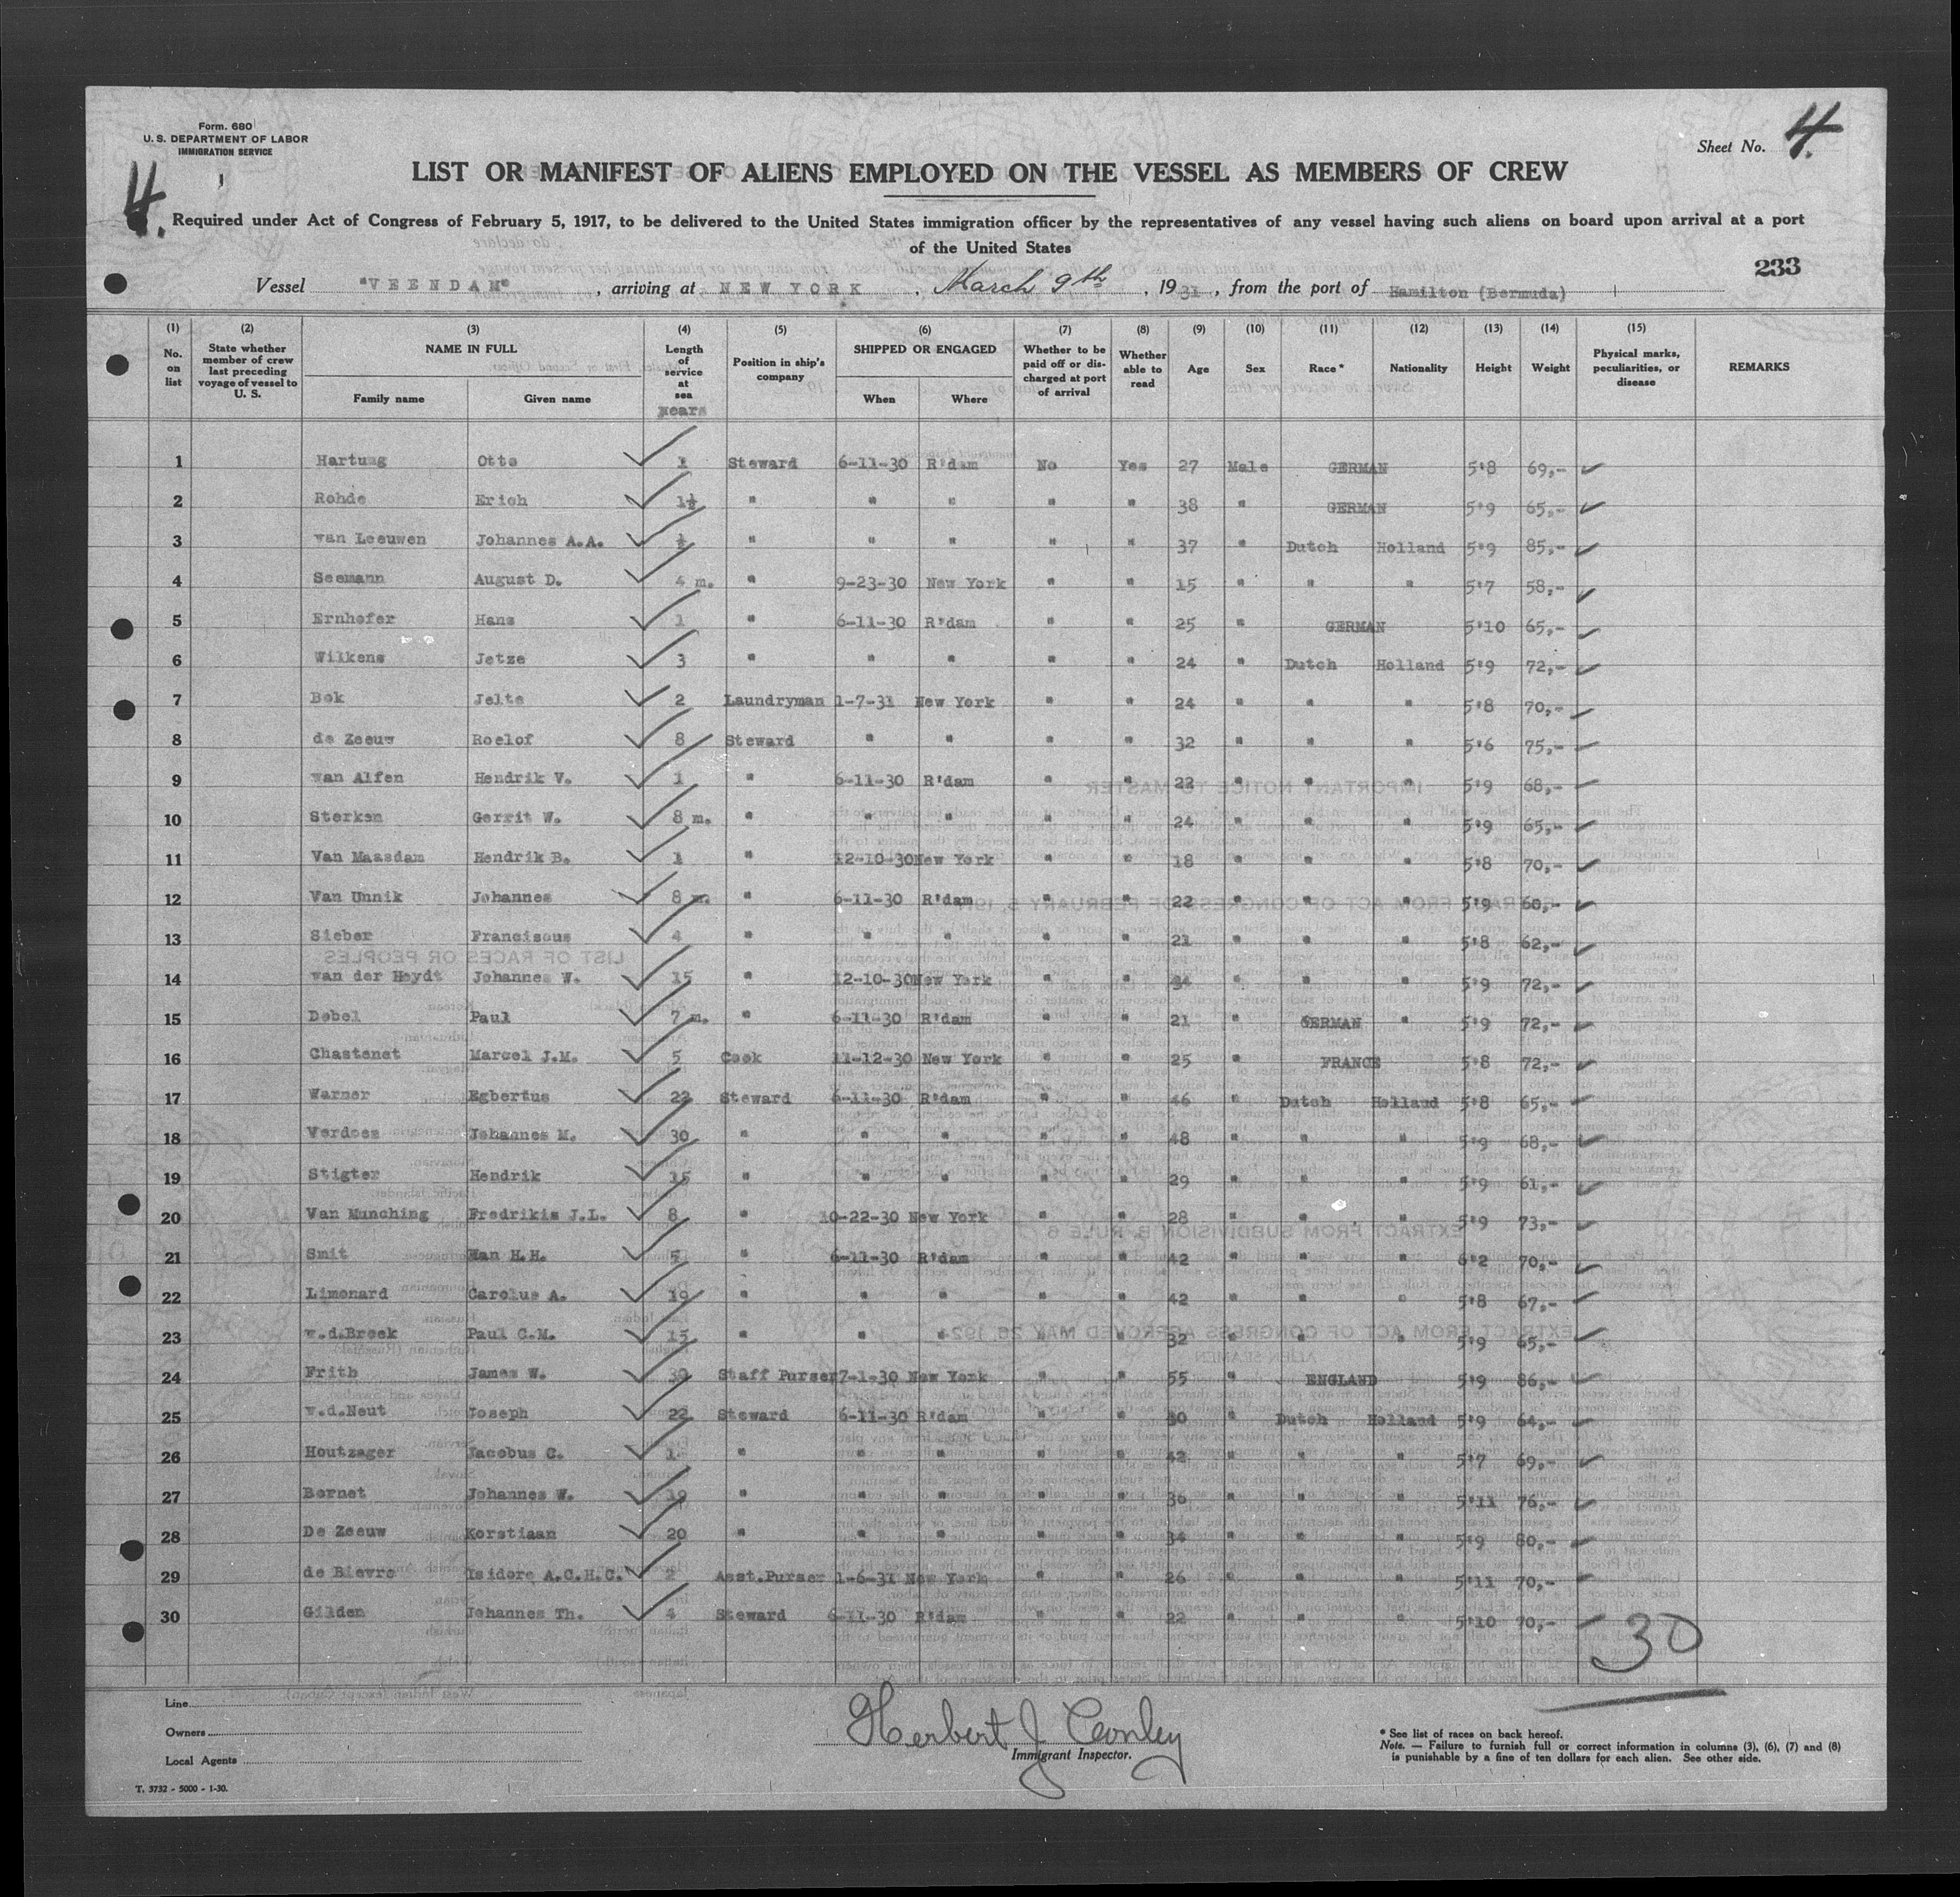 Form. 680
U. S. DEPARTMENT OF LABOR
IMMIGRATION SERVICE
Sheet No. 4.
4.
LIST OR MANIFEST OF ALIENS EMPLOYED ON THE VESSEL AS MEMBERS OF CREW
Required under Act of Congress of February 5, 1917, to be delivered to the United States immigration officer by the representatives of any vessel having such aliens on board upon arrival at a port
of the United States
233
Vessel "VEENDAM", arriving at NEW YORK, March 9th, 1931, from the port of Hamilton (Bermuda)
(1) (2) (3) (4) (5) (6) (7) (8) (9) (10) (11) (12) (13) (14) (15)
No. on list
State whether member of crew last preceding voyage of vessel to U. S.
NAME IN FULL
Family name Given name
Length of service at sea years
Position in ship's company
SHIPPED OR ENGAGED
When Where
Whether to be paid off or discharged at port of arrival
Whether able to read
Age Sex Race* Nationality Height Weight
Physical marks, peculiarities, or disease
REMARKS
1 Hartung Otto 1 Steward 6-11-30 R'dam No Yes 27 Male GERMAN 5'8 69,-
2 Rohde Erich 1½ " " " " " 38 " GERMAN 5'9 65,-
3 van Leeuwen Johannes A.A. ½ " " " " " 37 " Dutch Holland 5'9 85,-
4 Seemann August D. 4 m. " 9-23-30 New York " " 15 " " " 5'7 58,-
5 Ernhofer Hans 1 " 6-11-30 R'dam " " 25 " GERMAN 5'10 65,-
6 Wilkens Jetze 3 " " " " " 24 " Dutch Holland 5'9 72,-
7 Bok Jelte 2 Laundryman 1-7-31 New York " " 24 " " " 5'8 70,-
8 de Zeeuw Roelof 8 Steward " " " " 32 " " " 5'6 75,-
9 van Alfen Hendrik V. 1 " 6-11-30 R'dam " " 22 " " " 5'9 68,-
10 Sterken Gerrit W. 8 m. " " " " " 24 " " " 5'9 65,-
11 Van Maasdam Hendrik B. 1 " 12-10-30 New York " " 18 " " " 5'8 70,-
12 Van Unnik Johannes 8 m. " 6-11-30 R'dam " " 22 " " " 5'9 60,-
13 Sieber Franciscus 4 " " " " " 21 " " " 5'8 62,-
14 van der Heydt Johannes W. 15 " 12-10-30 New York " " " " " 5'9 72,-
15 Debel Paul 7 m. " 6-11-30 R'dam " " 21 " GERMAN " 5'9 72,-
16 Chastenet Marcel J.M. 5 Cook 11-12-30 New York " " 25 " FRANCE 5'8 72,-
17 Warner Egbertus 22 Steward 6-11-30 R'dam " " 46 " Dutch Holland 5'8 65,-
18 Verdoes Johannes M. 30 " " " " " 48 " " " 5'9 68,-
19 Stigter Hendrik 15 " " " " " 29 " " " 5'9 61,-
20 Van Munching Fredrikis J.L. 8 " 10-22-30 New York " " 28 " " " 5'9 73,-
21 Smit Han H.H. 5 " 6-11-30 R'dam " " 42 " " " 6'2 70,-
22 Limonard Carolus A. 19 " " " " " 42 " " " 5'8 67,-
23 v.d.Broek Paul C.M. 15 " " " " " 32 " " " 5'9 65,-
24 Frith James W. 30 Staff Purser 7-1-30 New York " " 55 " ENGLAND 5'9 86,-
25 v.d.Neut Joseph 22 Steward 6-11-30 R'dam " " 30 " Dutch Holland 5'9 64,-
26 Houtzager Jacobus C. " " " " " 42 " " " 5'7 69,-
27 Bernet Johannes W. 19 " " " " " 36 " " " 5'11 76,-
28 De Zeeuw Korstiaan 20 " " " " " 34 " " " 5'9 80,-
29 de Bievre Isidore A.C.H.C. 2 Asst.Purser 1-6-31 New York " " 26 " " " 5'11 70,-
30 Gilden Johannes Th. 4 Steward 6-11-30 R'dam " " 22 " " " 5'10 70,-
30
Line
Owners
Local Agents
Herbert J Conley
Immigrant Inspector.
* See list of races on back hereof.
Note. — Failure to furnish full or correct information in columns (3), (6), (7) and (8)
is punishable by a fine of ten dollars for each alien. See other side.
T. 3732 - 5000 - 1-30.